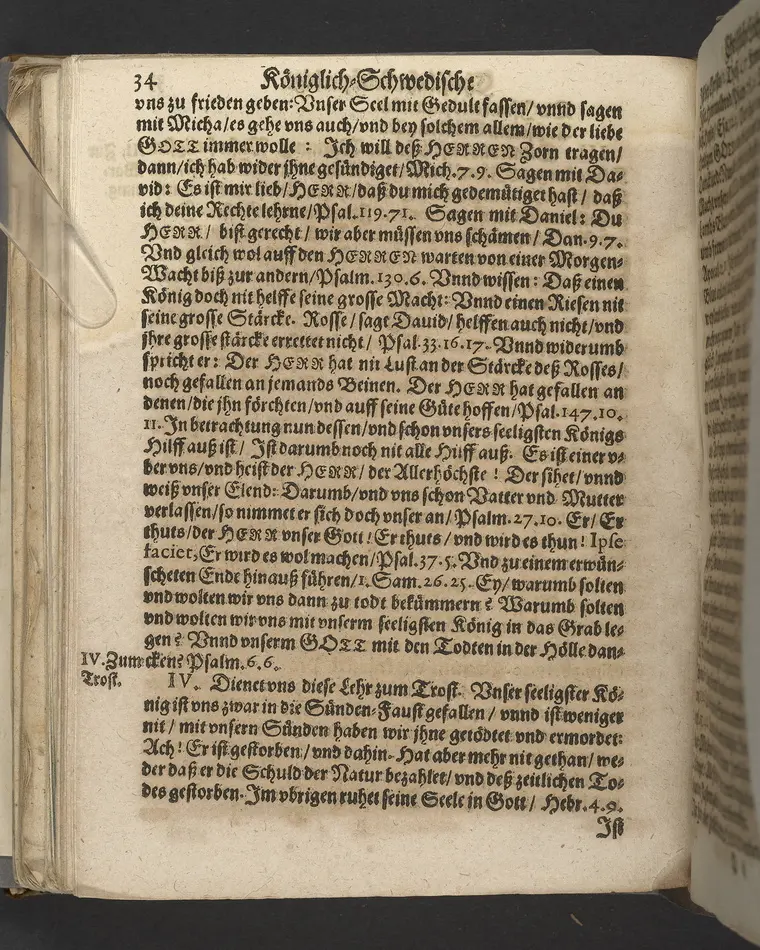 34 Königlich-Schwedische
vns zu frieden geben: Vnser Seel mit Gedult fassen/ vnnd sagen
mit Micha/ es gehe vns auch/ vnd bey solchem allem/ wie der liebe
GOTT immer wolle : Ich will deß HERREN Zorn tragen/
dann/ ich hab wider jhne gesündiget/ Mich. 7. 9. Sagen mit Da-
vid: Es ist mir lieb/ HERR/ daß du mich gedemütiget hast/ daß
ich deine Rechte lehrne/ Psal. 119. 71. Sagen mit Daniel: Du
HERR/ bist gerecht/ wir aber müssen vns schämen/ Dan. 9. 7.
Vnd gleich wol auff den HERREN warten von einer Morgen-
Wacht biß zur andern/ Psalm. 130. 6. Vnnd wissen: Daß einen
König doch nit helffe seine grosse Macht: Vnnd einen Riesen nit
seine grosse Stärcke. Rosse/ sagt Dauid/ helffen auch nicht/ vnd
jhre grosse stärcke errettet nicht/ Psal. 33. 16. 17. Vnnd widerumb
spricht er: Der HERR hat nit Lust an der Stärcke deß Rosses/
noch gefallen an jemands Beinen. Der HERR hat gefallen an
denen/ die jhn förchten/ vnd auff seine Güte hoffen/ Psal. 147. 10.
11. In betrachtung nun dessen/ vnd schon vnsers seeligsten Königs
Hilff auß ist/ Ist darumb noch nit alle Hülff auß. Es ist einer v-
ber vns/ vnd heist der HERR/ der Allerhöchste ! Der sihet/ vnnd
weiß vnser Elend: Darumb/ vnd vns schon Vatter vnd Mutter
verlassen/ so nimmet er sich doch vnser an/ Psalm. 27. 10. Er/ Er
thuts/ der HERR vnser Gott! Er thuts/ vnd wird es thun! Ipse
faciet, Er wird es wol machen/ Psal. 37. 5. Vnd zu einem erwün-
scheten Ende hinauß führen/ 1. Sam. 26. 25. Ey/ warumb solten
vnd wolten wir vns dann zu todt bekümmern? Warumb solten
vnd wolten wir vns mit vnserm seeligsten König in das Grab le-
gen? Vnnd vnserm GOTT mit den Todten in der Hölle dan-
cken? Psalm. 6. 6.
IV. Zum
Trost.
IV. Dienet vns diese Lehr zum Trost. Vnser seeligster Kö-
nig ist vns zwar in die Sünden-Faust gefallen/ vnnd ist weniger
nit/ mit vnsern Sünden haben wir jhne getödtet vnd ermordet:
Ach! Er ist gestorben/ vnd dahin. Hat aber mehr nit gethan/ we-
der daß er die Schuld der Natur bezahlet/ vnd deß zeitlichen To-
des gestorben. Im vbrigen ruhet seine Seele in Gott/ Hebr. 4. 9.
Ist